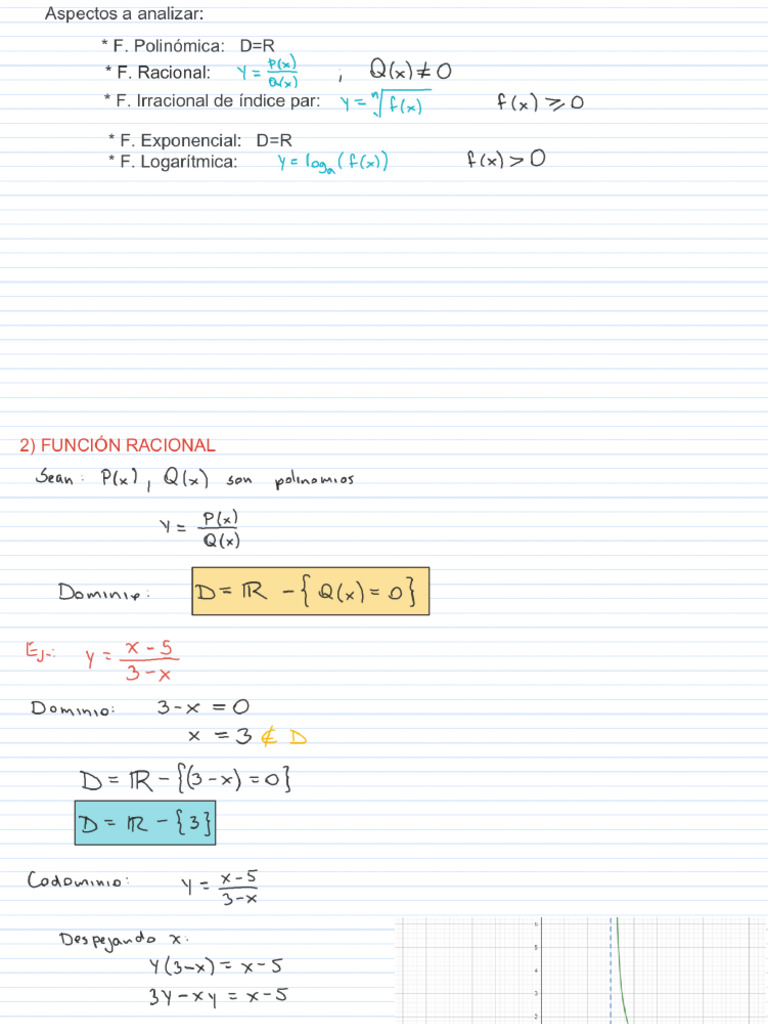 Aspectos a analizar:
* F. Polinómica: D=R
* F. Racional: y = P(x)/Q(x) ; Q(x) ≠ 0
* F. Irracional de índice par: y = ⁿ√f(x) f(x) ≥ 0
* F. Exponencial: D=R
* F. Logarítmica: y = logₐ(f(x)) f(x) > 0
2) FUNCIÓN RACIONAL
Sean: P(x), Q(x) son polinomios
y = P(x)/Q(x)
Dominio: D = ℝ - {Q(x) = 0}
Ej.: y = x - 5/3 - x
Dominio: 3 - x = 0
x = 3 ∉ D
D = ℝ - {(3 - x) = 0}
D = ℝ - {3}
Codominio: y = x - 5/3 - x
Despejando x:
y(3 - x) = x - 5
3y - xy = x - 5
6
5
4
3
2